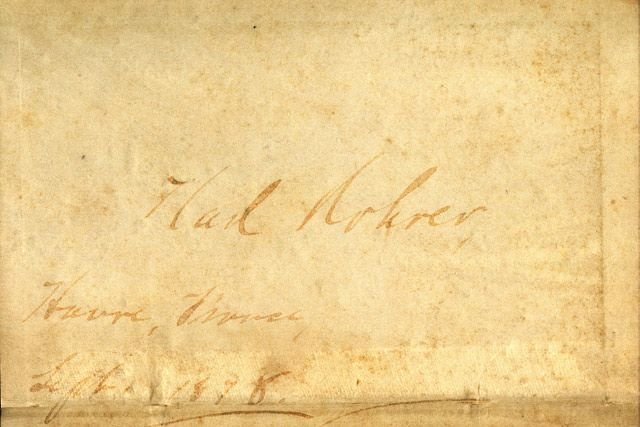 Rohrer,
Havre, France,
Sept. 1878.